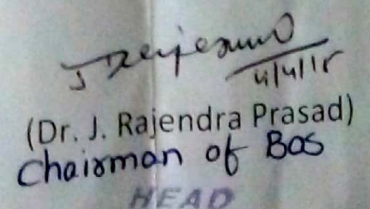 4/4/15
(Dr. J. Rajendra Prasad)
Chairman of BOS
HEAD